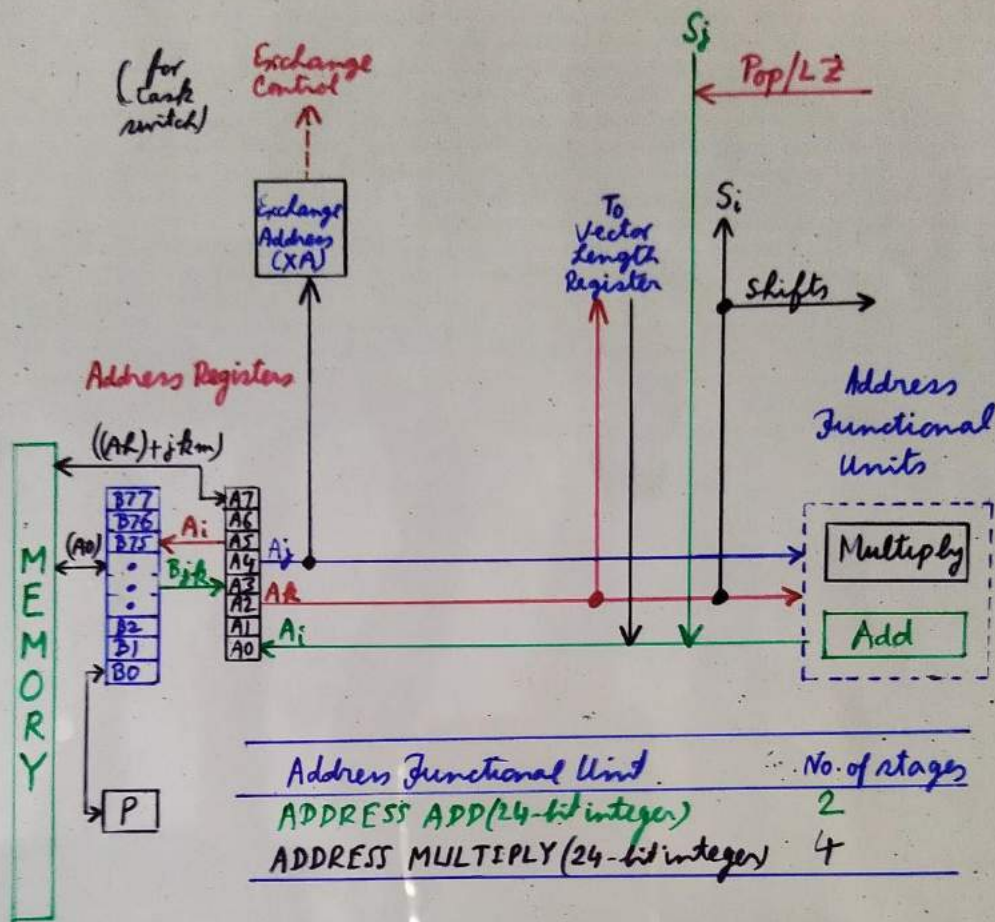 Sj
Pop/LZ
(for
task
switch)
Exchange
Control
Exchange
Address
(XA)
To
Vector
Length
Register
Si
Shifts
Address Registers
Address
Functional
Units
MEMORY
((Ah)+jkm)
(A0)
B77
B76
B75
B2
B1
B0
Ai
Bjk
A7
A6
A5
A4
A3
A2
A1
A0
Aj
Ak
Ai
Multiply
Add
P
Address Functional Unit No. of stages
ADDRESS ADD (24-bit integer) 2
ADDRESS MULTIPLY (24-bit integer) 4